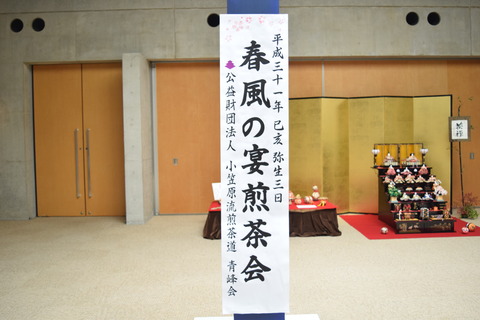 平成三十一年 己亥 弥生三日
春風の宴煎茶会
公益財団法人 小笠原流煎茶道 青峰会